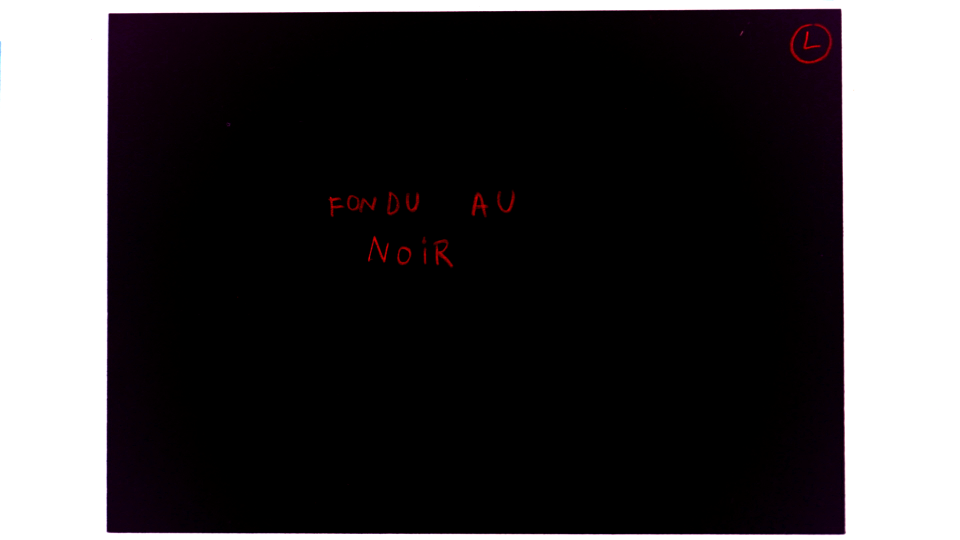 L
FONDU AU
NOIR